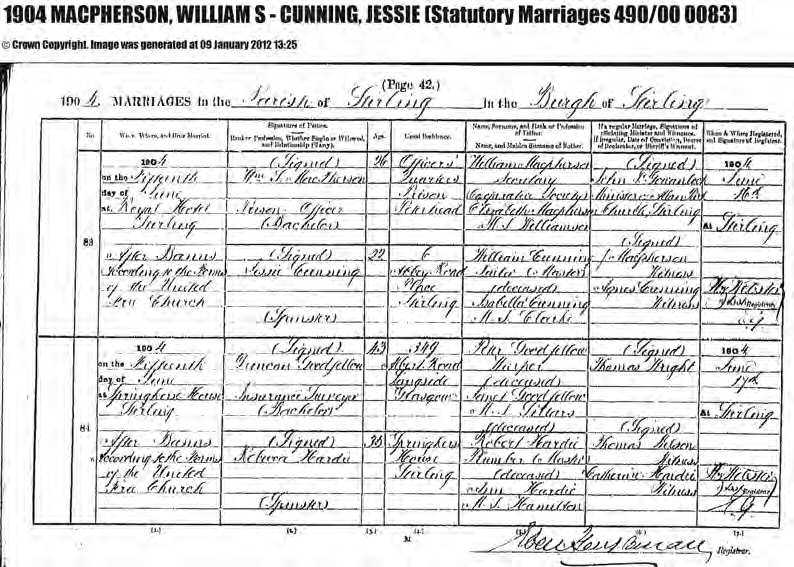 1904 MACPHERSON, WILLIAM S - CUNNING, JESSIE (Statutory Marriages 490/00 0083)
© Crown Copyright. Image was generated at 09 January 2012 13:25
(Page 42.)
1904. MARRIAGES in the Parish of Stirling in the Burgh of Stirling
No. When, Where, and How Married. Signatures of Parties. Rank or Profession, Whether Single or Widowed, and Relationship (if any). Age. Usual Residence. Name, Surname, and Rank or Profession of Father. Name, and Maiden Surname of Mother. If a regular Marriage, Signatures of officiating Minister and Witnesses. If irregular, Date of Conviction, Decree of Declarator, or Sheriff's Warrant. When & Where Registered, and Signature of Registrar.
1904 (Signed) 26 Officers' William Macpherson (Signed) 1904
on the Fifteenth Wm S. MacPherson Quarters Secretary June
day of June Prison Cooperative Society 16th
at Royal Hotel Prison Officer Peterhead Elizabeth Macpherson Church Stirling
Stirling (Bachelor) M.S. Williamson at Stirling
83 (Signed)
After Banns (Signed) 22 6 William Cunning J. Macpherson
According to the Forms Jessie Cunning Abbey Road Master Witness
of the United Place (deceased) Agnes Cunning
Free Church Stirling Isabella Cunning Witness
(Spinster) M.S. Clark
1904 (Signed) 43 349 Peter Goodfellow (Signed) 1904
on the Fifteenth Duncan Goodfellow Albert Road Thomas Wright June
day of June Langside (deceased) 17th
at Springkerse House Insurance Surveyor Glasgow Janet Goodfellow
Stirling (Bachelor) M.S. at Stirling
84 (deceased) (Signed)
After Banns (Signed) 38 Springkerse Robert Hardie Thomas
According to the Forms Rebecca Hardie House Plumber Master Witness
of the United Stirling (deceased) Catherine Hardie
Free Church Hardie Witness
(Spinster) M.S. Hamilton
(1.) (2.) (3.) (4.) (5.) (6.) (7.)
M
Registrar.